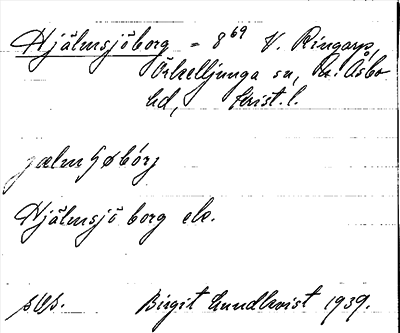 Hjälmsjöborg = 8⁶⁹ V. Ringarp,
Örkelljunga sn, N. Åsbo
hd, Krist. l.
Hjälmsjö borg
Birgit Lundkvist 1939.